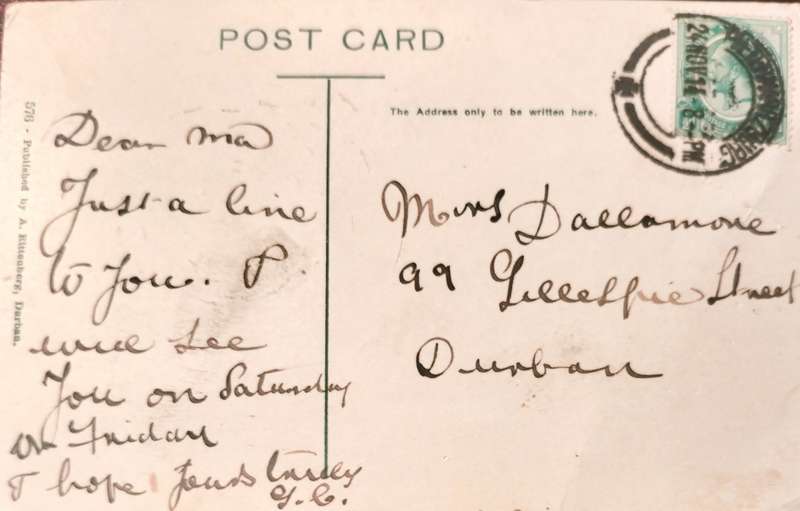 POST CARD
The Address only to be written here.
576 - Published by A. Rittenberg, Durban.
24 NOV 14
PM
Dear Ma
Just a line
to you. I
will see
you on Saturday
or Friday
I hope yours truly
G. C.
Mrs Dallamore
99 Gillespie Street
Durban